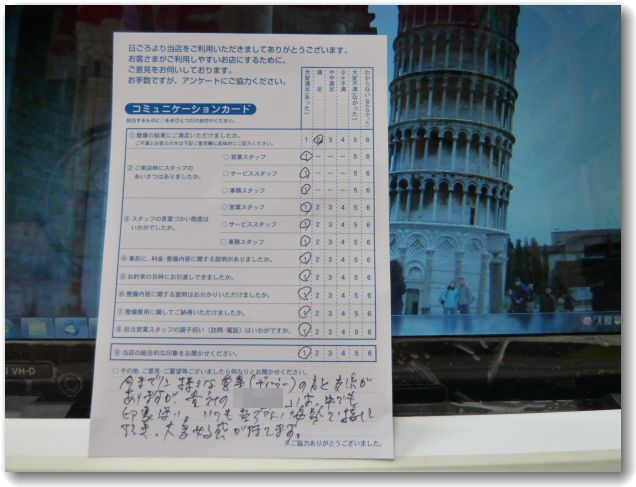 日ごろより当店をご利用いただきましてありがとうございます。
お客さまがご利用しやすいお店にするために、
ご意見をお伺いしております。
お手数ですが、アンケートにご協力ください。
コミュニケーションカード
大変満足(あった)
満足
やや満足
少々不満
大変不満(なかった)
わからない
①整備の結果にご満足いただけましたか。 1 2 3 4 5 6
ご不満とお答えの方は下記ご意見欄に具体的にご記入ください。
②ご来店時にスタッフのあいさつはありましたか。
○営業スタッフ 1 − − − 5 6
○サービススタッフ 1 − − − 5 6
○事務スタッフ 1 − − − 5 6
③スタッフの言葉づかい態度はいかがでしたか。
○営業スタッフ 1 2 3 4 5 6
○サービススタッフ 1 2 3 4 5 6
○事務スタッフ 1 2 3 4 5 6
④事前に、料金・整備内容に関する説明がありましたか。 1 2 3 4 5 6
⑤お約束の日時にお引渡しできましたか。 1 2 3 4 5 6
⑥整備内容に関する説明はお分かりいただけましたか。 1 2 3 4 5 6
⑦整備費用に関してご納得いただけましたか。 1 2 3 4 5 6
⑧担当営業スタッフの調子伺い(訪問・電話)はいかがですか。 1 2 3 4 5 6
⑨当店の総合的な印象をお聞かせください。 1 2 3 4 5 6
○その他、ご意見・ご要望等ございましたら何なりとお聞かせください。
今まで に 様々な
ありますが、貴社の は、中でも
印象
大変 が持てます。
※ご協力ありがとうございました。
VH-D